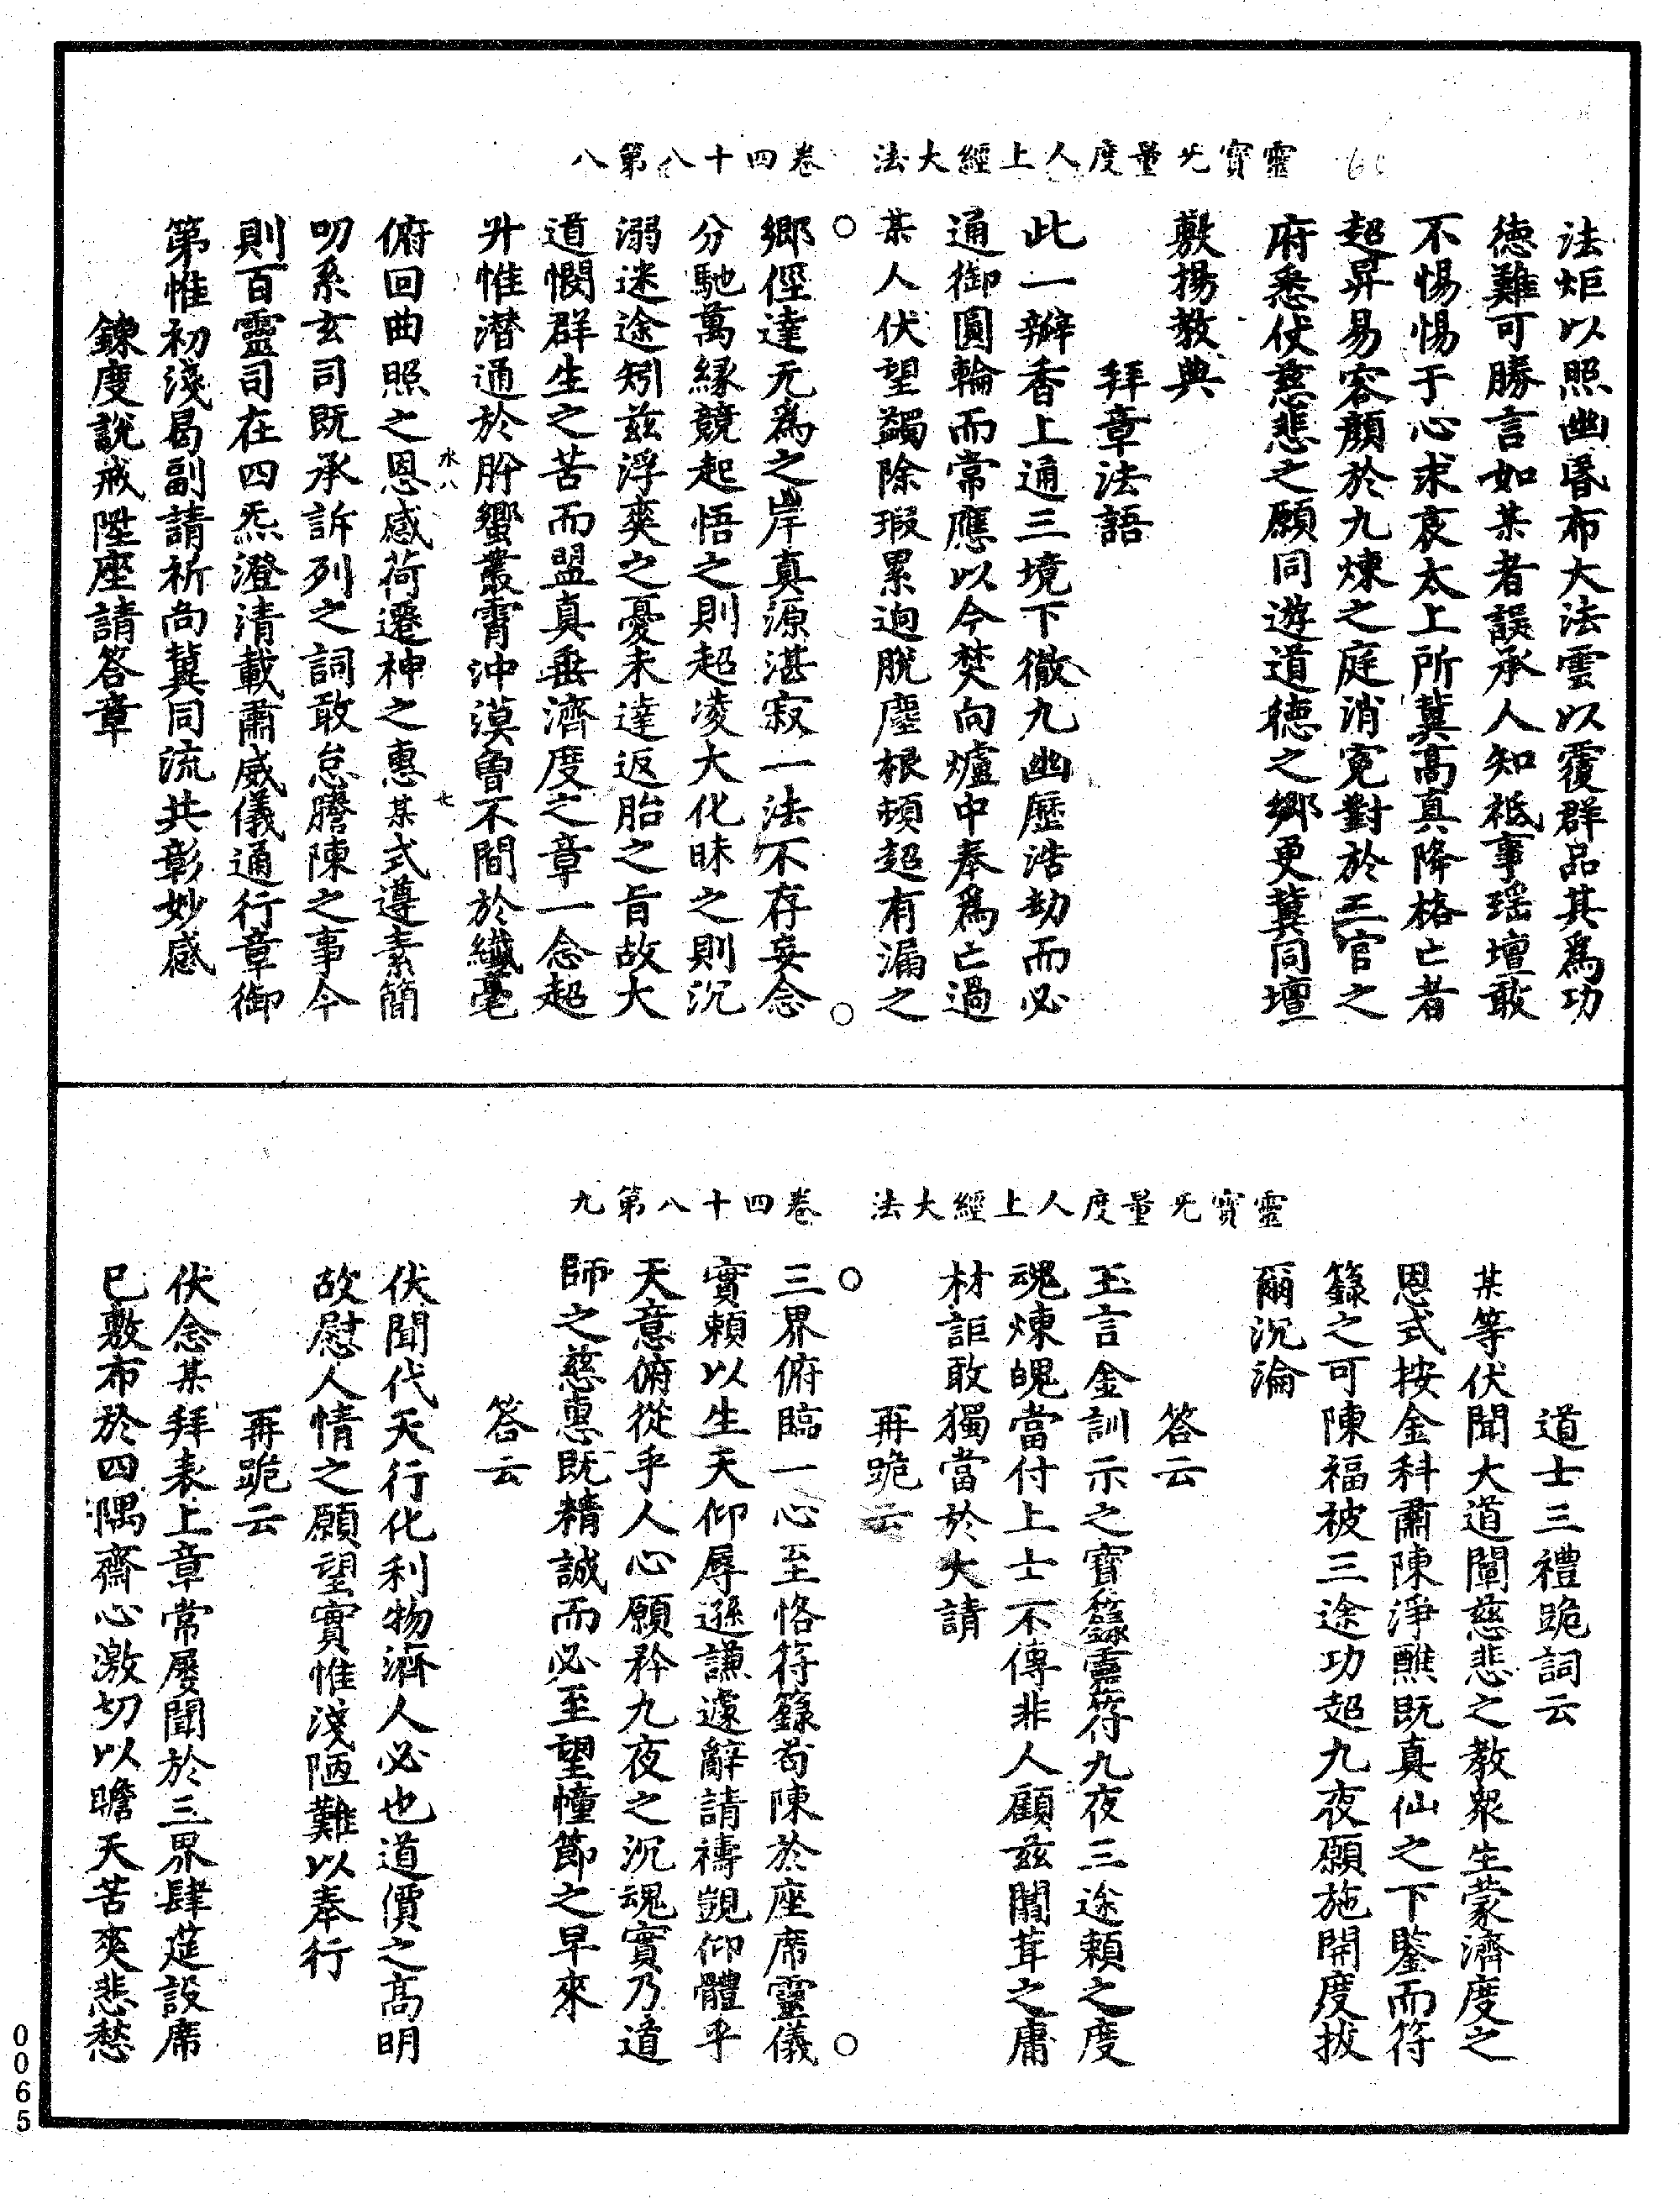 靈寶无量度人上經大法　卷四十八第八
法炬以照幽昏布大法雲以覆群品其為功
德難可勝言如某者誤承人知祗事瑶壇敢
不惕惕于心求哀太上所冀高真降格亡者
超昇易容顏於九煉之庭消寃對於三官之
府悉仗慈悲之願同遊道德之鄉更冀同壇
敷揚教典
拜章法語
此一瓣香上通三境下徹九幽歷浩劫而必
通御圓輪而常應以今焚向爐中奉為亡過
某人伏望蠲除瑕累迥脫塵根頓超有漏之
鄉徑達无為之岸真源湛寂一法不存妄念
分馳萬緣競起悟之則超凌大化昧之則沉
溺迷途矧兹浮爽之憂未達返胎之旨故大
道憫群生之苦而盟真垂濟度之章一念超
升惟潛通於肸蠁叢霄沖漠曾不間於纖毫
水八　七
俯回曲照之恩感荷遷神之惠某式遵素簡
叨系玄司既承訴列之詞敢怠謄陳之事今
則百靈司在四炁澄清載肅威儀通行章御
第惟初淺曷副請祈尚冀同流共彰妙感
鍊度說戒陞座請答章
靈寶无量度人上經大法　卷四十八第九
道士三禮跪詞云
某等伏聞大道闡慈悲之教衆生蒙濟度之
恩式按金科肅陳淨醮既真仙之下鑒而符
籙之可陳福被三途功超九夜願施開度拔
爾沉淪
答云
玉言金訓示之寶籙靈符九夜三途賴之度
魂煉魄當付上士不傳非人顧兹闒茸之庸
材詎敢獨當於大請
再跪云
三界俯臨一心至恪符籙苟陳於座席靈儀
實賴以生天仰辱遜謙遽辭請禱覬仰體乎
天意俯從乎人心願矜九夜之沉魂實乃道
師之慈惠既精誠而必至望幢節之早來
答云
伏聞代天行化利物濟人必也道價之高明
故慰人情之願望實惟淺陋難以奉行
再跪云
伏念某拜表上章常屢聞於三界肆莚設席
已敷布於四隅齋心激切以瞻天苦爽悲愁
0065